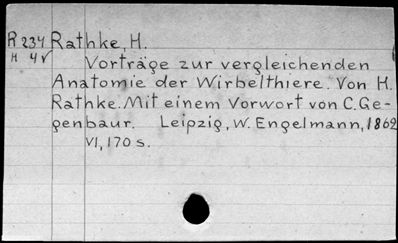 R 234 Rathke, H.
H 4v
Vorträge zur vergleichenden
Anatomie der Wirbelthiere. Von H.
Rathke. Mit einem Vorwort von C. Ge-
genbaur. Leipzig, W. Engelmann, 1862
VI, 170 s.